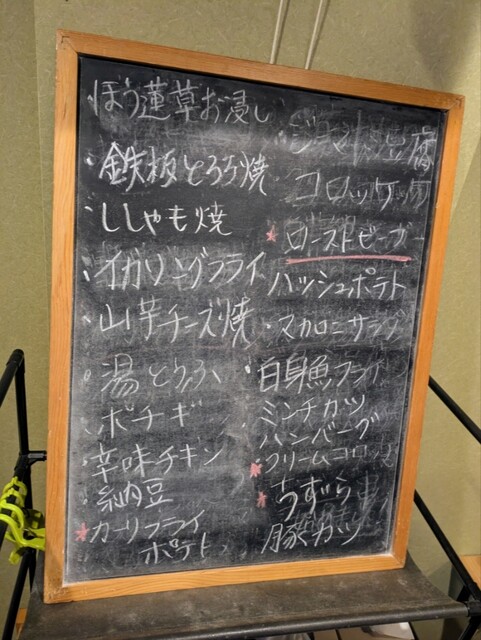 ほう蓮草お浸し
・鉄板とろろ焼
・ししゃも焼
・イカリングフライ
・山芋チーズ焼
・湯とうふ
ポテギ
・辛味チキン
納豆
★カーリフライ
ポテト
豆腐
コロッケ
★ローストビーフ
ハッシュポテト
・マカロニサラダ
・白身魚フライ
ミンチカツ
ハンバーグ
★クリームコロ
★うずら
豚カツ